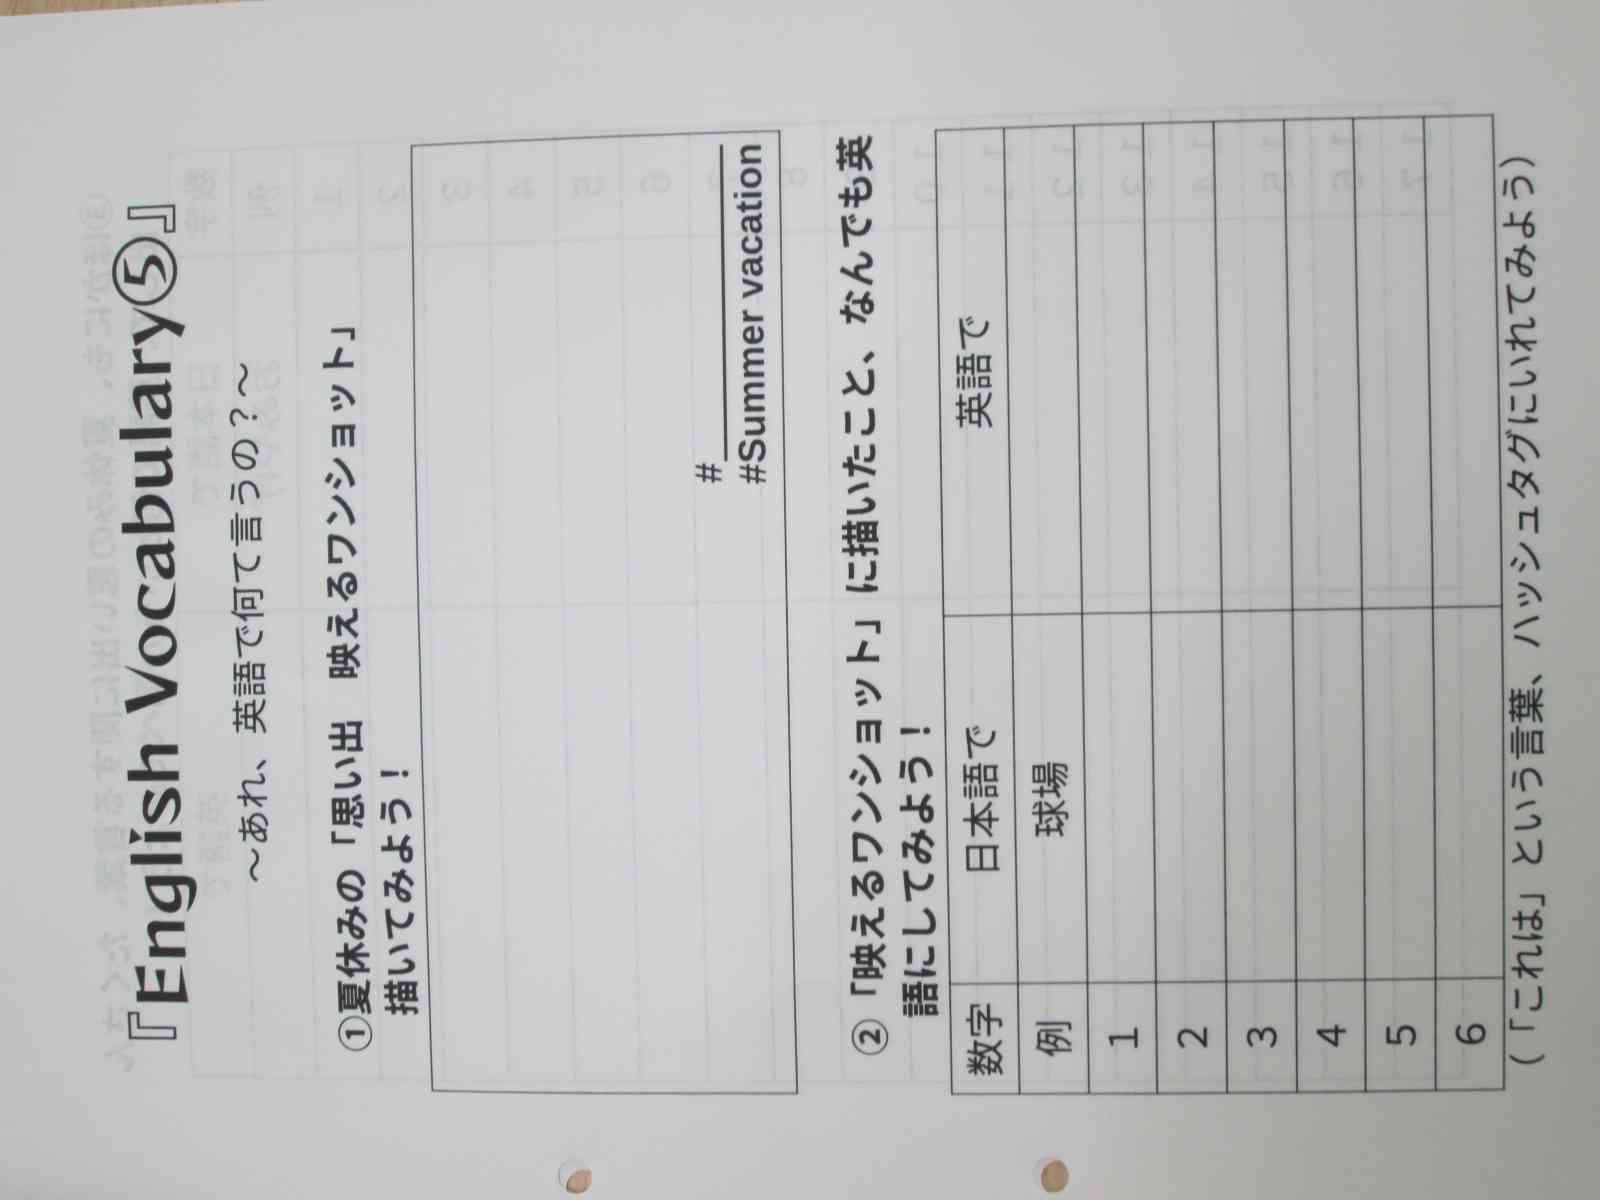 『English Vocabulary⑤』
～あれ、英語で何て言うの？～
①夏休みの「思い出　映えるワンショット」
描いてみよう！
#
#Summer vacation
②「映えるワンショット」に描いたこと、なんでも英
語にしてみよう！
数字 日本語で 英語で
例 球場
1
2
3
4
5
6
（「これは」という言葉、ハッシュタグにいれてみよう）